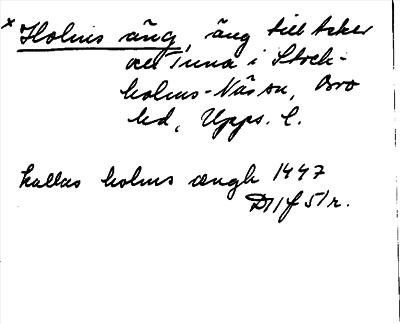 x Holms äng, äng till Asker
och Tuna i Stock-
holms-Näs sn, Bro
hd, Upps. l.
kallas holms ængh 1447
f 51 r.